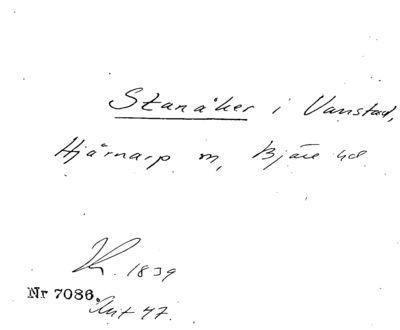 Stanåker i Vanstad,
Hjärnarp sn, Bjäre hd
Kr. 1839
Nr 7086.
Akt 47.